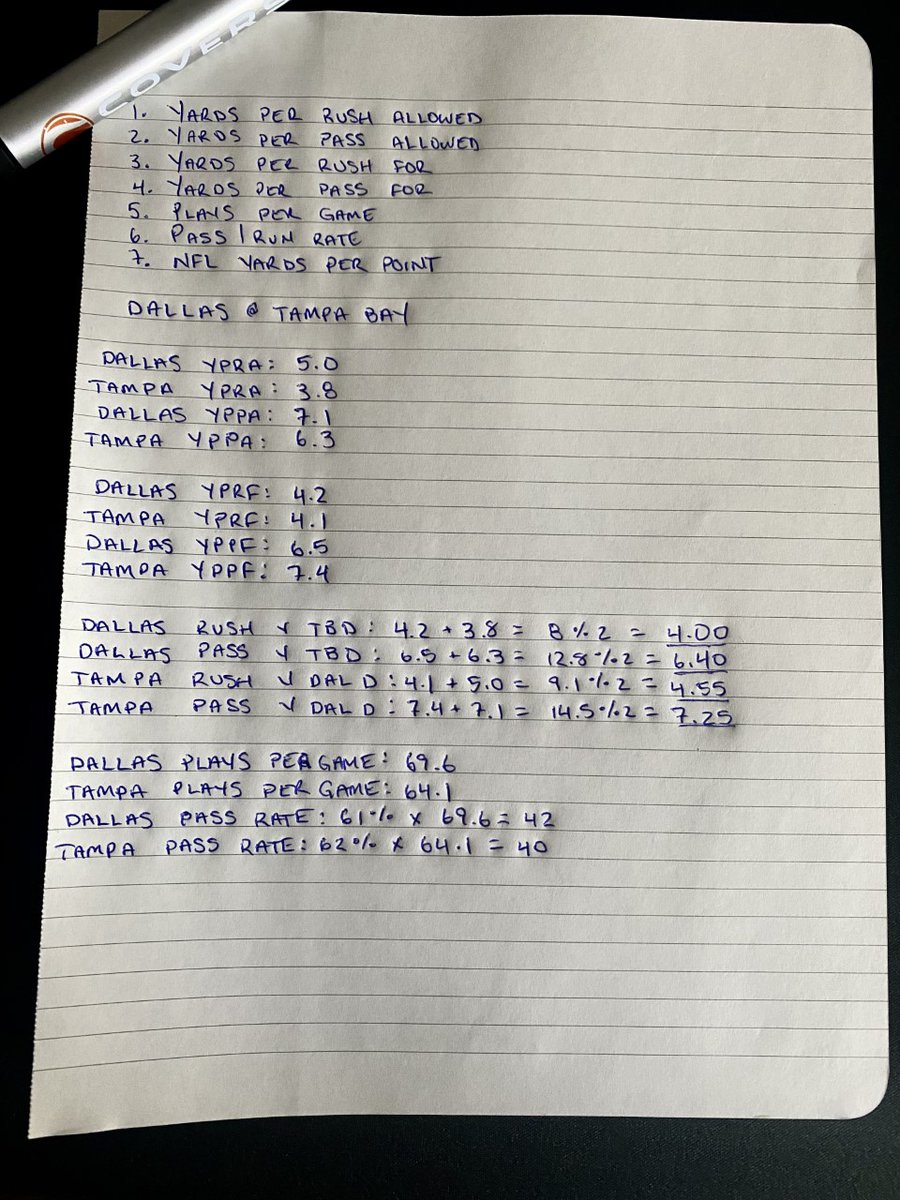 COVERS
1. YARDS PER RUSH ALLOWED
2. YARDS PER PASS ALLOWED
3. YARDS PER RUSH FOR
4. YARDS PER PASS FOR
5. PLAYS PER GAME
6. PASS / RUN RATE
7. NFL YARDS PER POINT
DALLAS @ TAMPA BAY
DALLAS YPRA: 5.0
TAMPA YPRA: 3.8
DALLAS YPPA: 7.1
TAMPA YPPA: 6.3
DALLAS YPRF: 4.2
TAMPA YPRF: 4.1
DALLAS YPPF: 6.5
TAMPA YPPF: 7.4
DALLAS RUSH V TBD: 4.2 + 3.8 = 8 % 2 = 4.00
DALLAS PASS V TBD: 6.5 + 6.3 = 12.8 % 2 = 6.40
TAMPA RUSH V DAL D: 4.1 + 5.0 = 9.1 % 2 = 4.55
TAMPA PASS V DAL D: 7.4 + 7.1 = 14.5 % 2 = 7.25
DALLAS PLAYS PER GAME: 69.6
TAMPA PLAYS PER GAME: 64.1
DALLAS PASS RATE: 61% x 69.6 = 42
TAMPA PASS RATE: 62% x 64.1 = 40